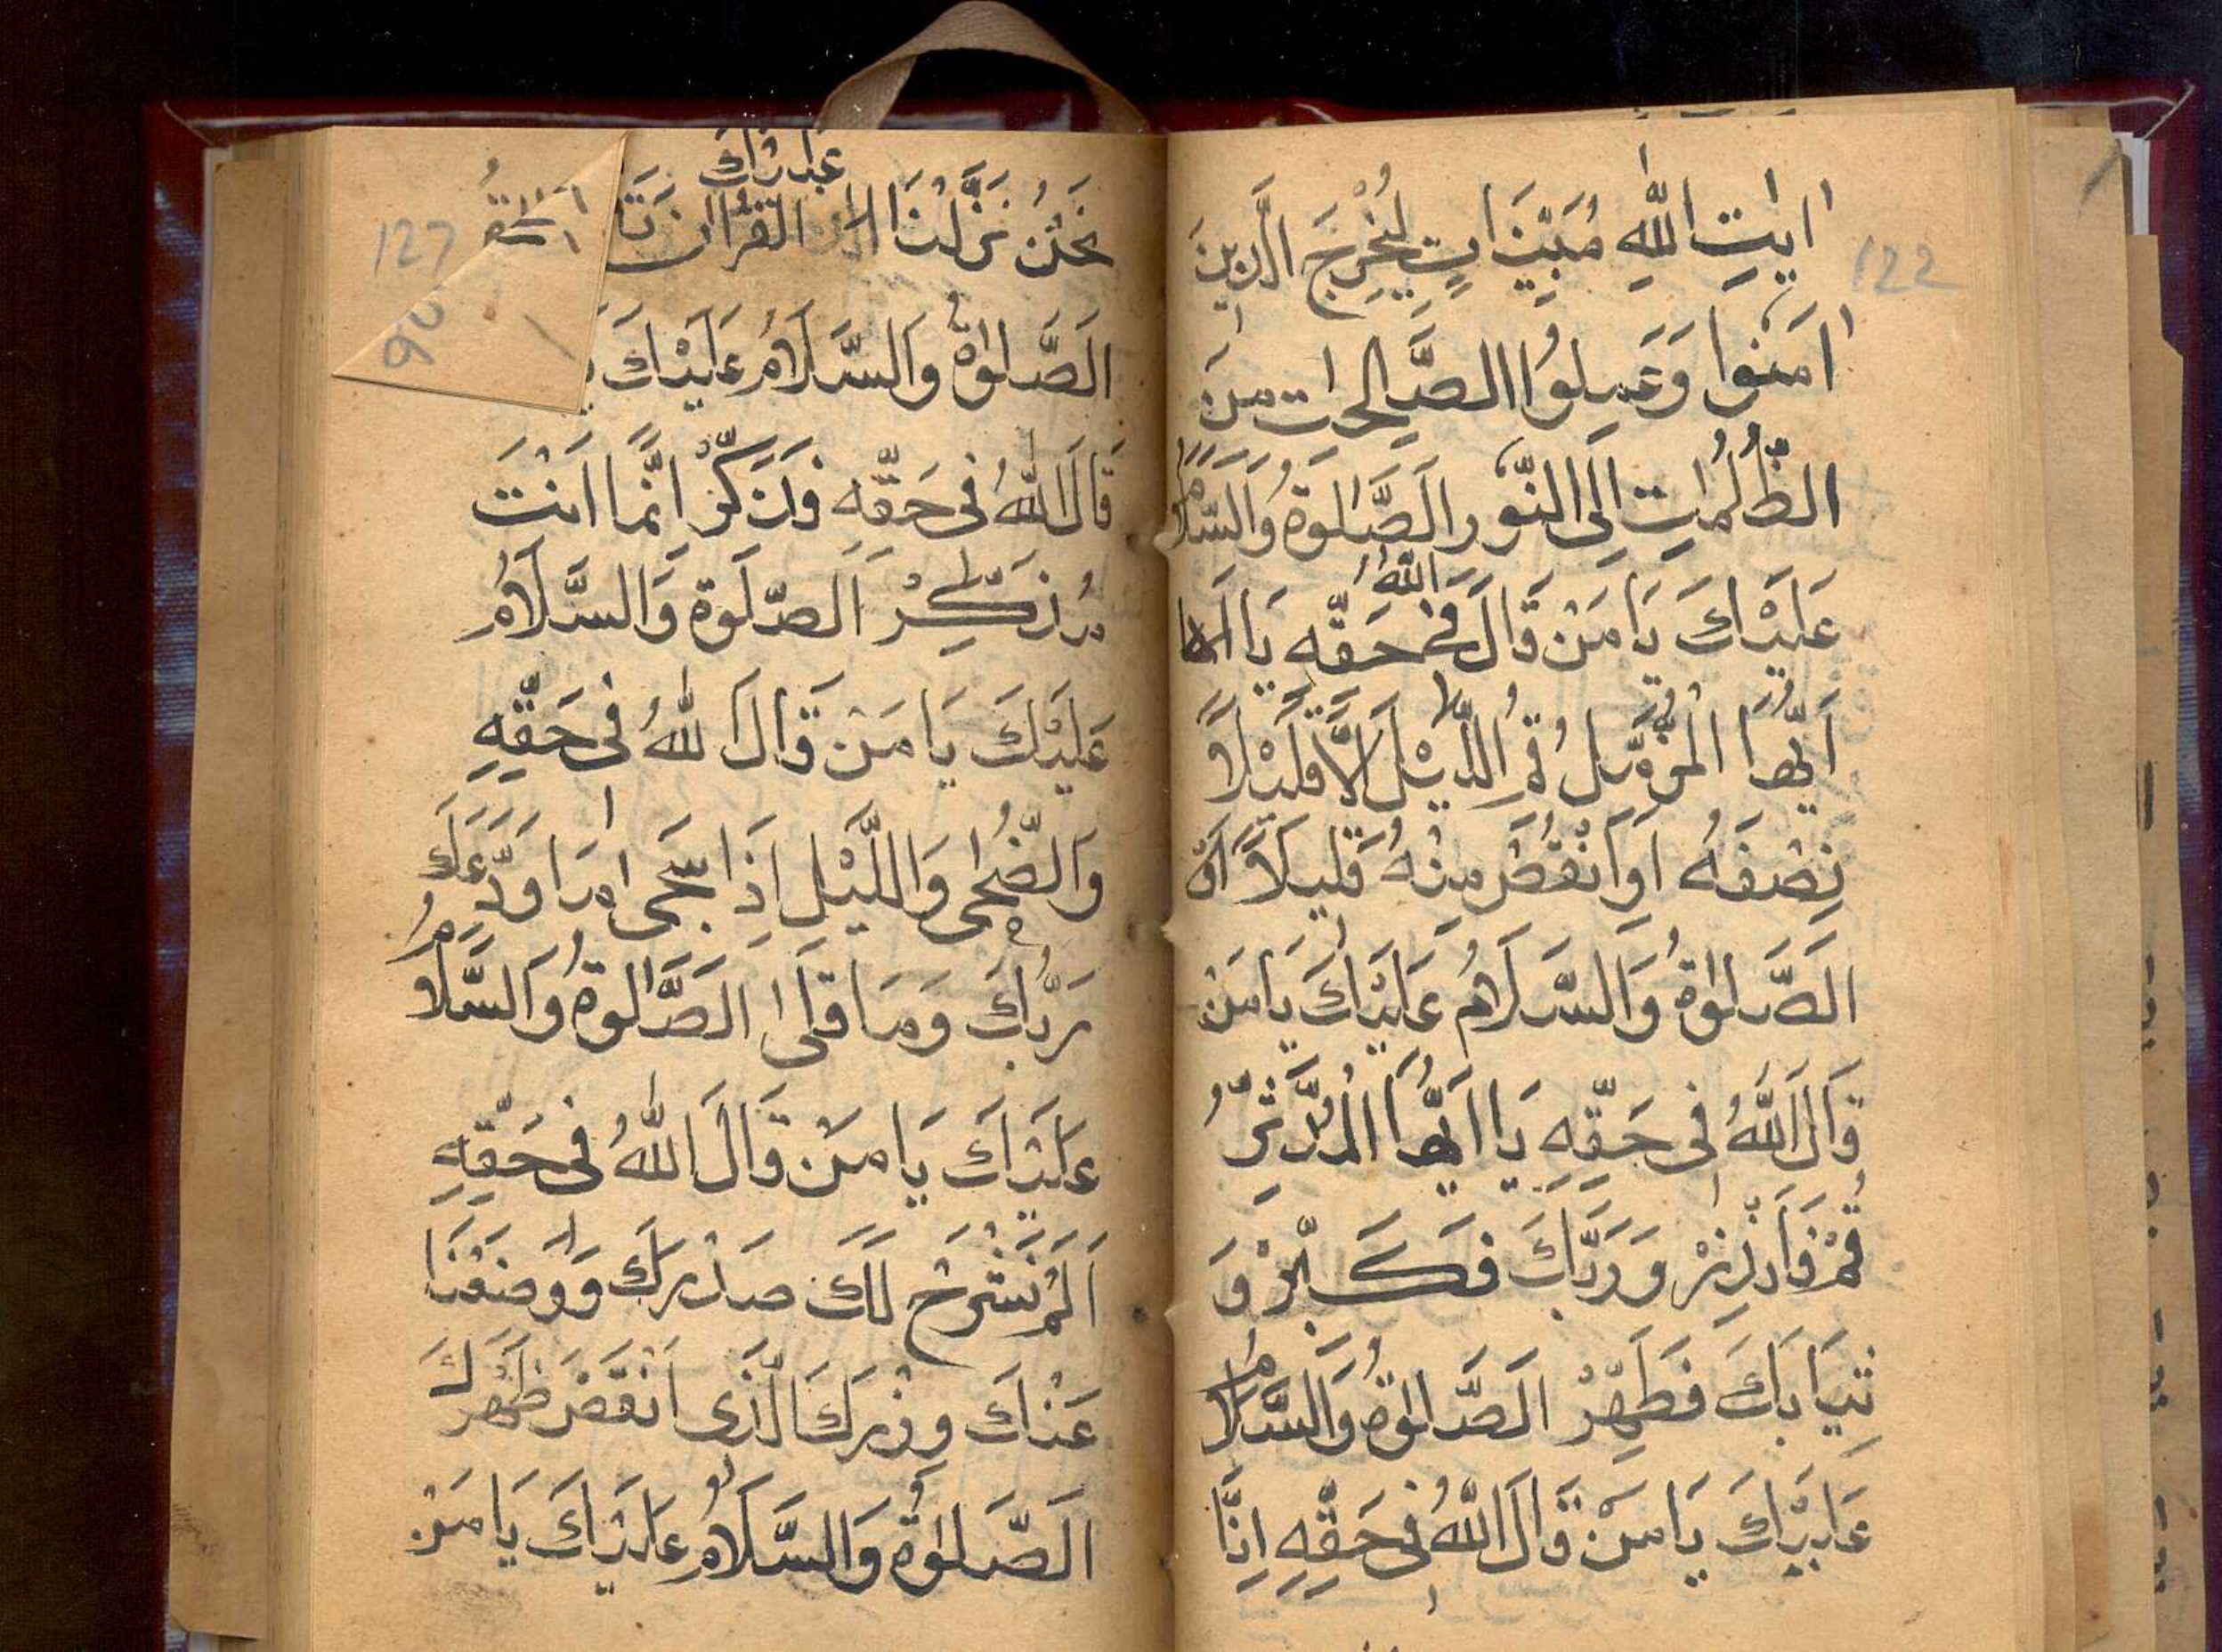 اٰيٰتِ اللّٰهِ مُبَيِّنَاتٍ لِيُخْرِجَ الَّذِينَ
122
اٰمَنُوا وَعَمِلُوا الصَّالِحَاتِ مِنَ
الظُّلُمَاتِ اِلَى النُّورِ اَلصَّلٰوةُ وَالسَّلَامُ
عَلَيْكَ يَا مَنْ قَالَ اللّٰهُ فِي حَقِّهِ يَا
اَيُّهَا الْمُزَّمِّلُ قُمِ اللَّيْلَ اِلَّا قَلِيْلًا
نِصْفَهُ اَوِ انْقُصْ مِنْهُ قَلِيلًا اَوْ
اَلصَّلٰوةُ وَالسَّلَامُ عَلَيْكَ يَا مَنْ
قَالَ اللّٰهُ فِي حَقِّهِ يَا اَيُّهَا الْمُدَّثِّرُ
قُمْ فَاَنْذِرْ وَرَبَّكَ فَكَبِّرْ وَ
ثِيَابَكَ فَطَهِّرْ اَلصَّلٰوةُ وَالسَّلَامُ
عَلَيْكَ يَا مَنْ قَالَ اللّٰهُ فِي حَقِّهِ اِنَّا
عَلَيْكَ
نَحْنُ نَزَّلْنَا الْقُرْاٰنَ
127
اَلصَّلٰوةُ وَالسَّلَامُ عَلَيْكَ
قَالَ اللّٰهُ فِي حَقِّهِ فَذَكِّرْ اِنَّمَا اَنْتَ
مُذَكِّرْ اَلصَّلَوة وَالسَّلَامُ
عَلَيْكَ يَا مَنْ قَالَ للّٰهُ فِي حَقِّهِ
وَالضُّحٰى وَاللَّيْلِ اِذَا سَجٰى مَا وَدَّعَكَ
رَبُّكَ وَمَا قَلٰى اَلصَّلٰوةُ وَالسَّلَامُ
عَلَيْكَ يَا مَنْ قَالَ اللّٰهُ فِي حَقِّهِ
اَلَمْ نَشْرَحْ لَكَ صَدْرَكَ وَوَضَعْنَا
عَنْكَ وِزْرَكَ الَّذِي اَنْقَضَ ظَهْرَكَ
اَلصَّلٰوةُ وَالسَّلَامُ عَلَيْكَ يَا مَنْ